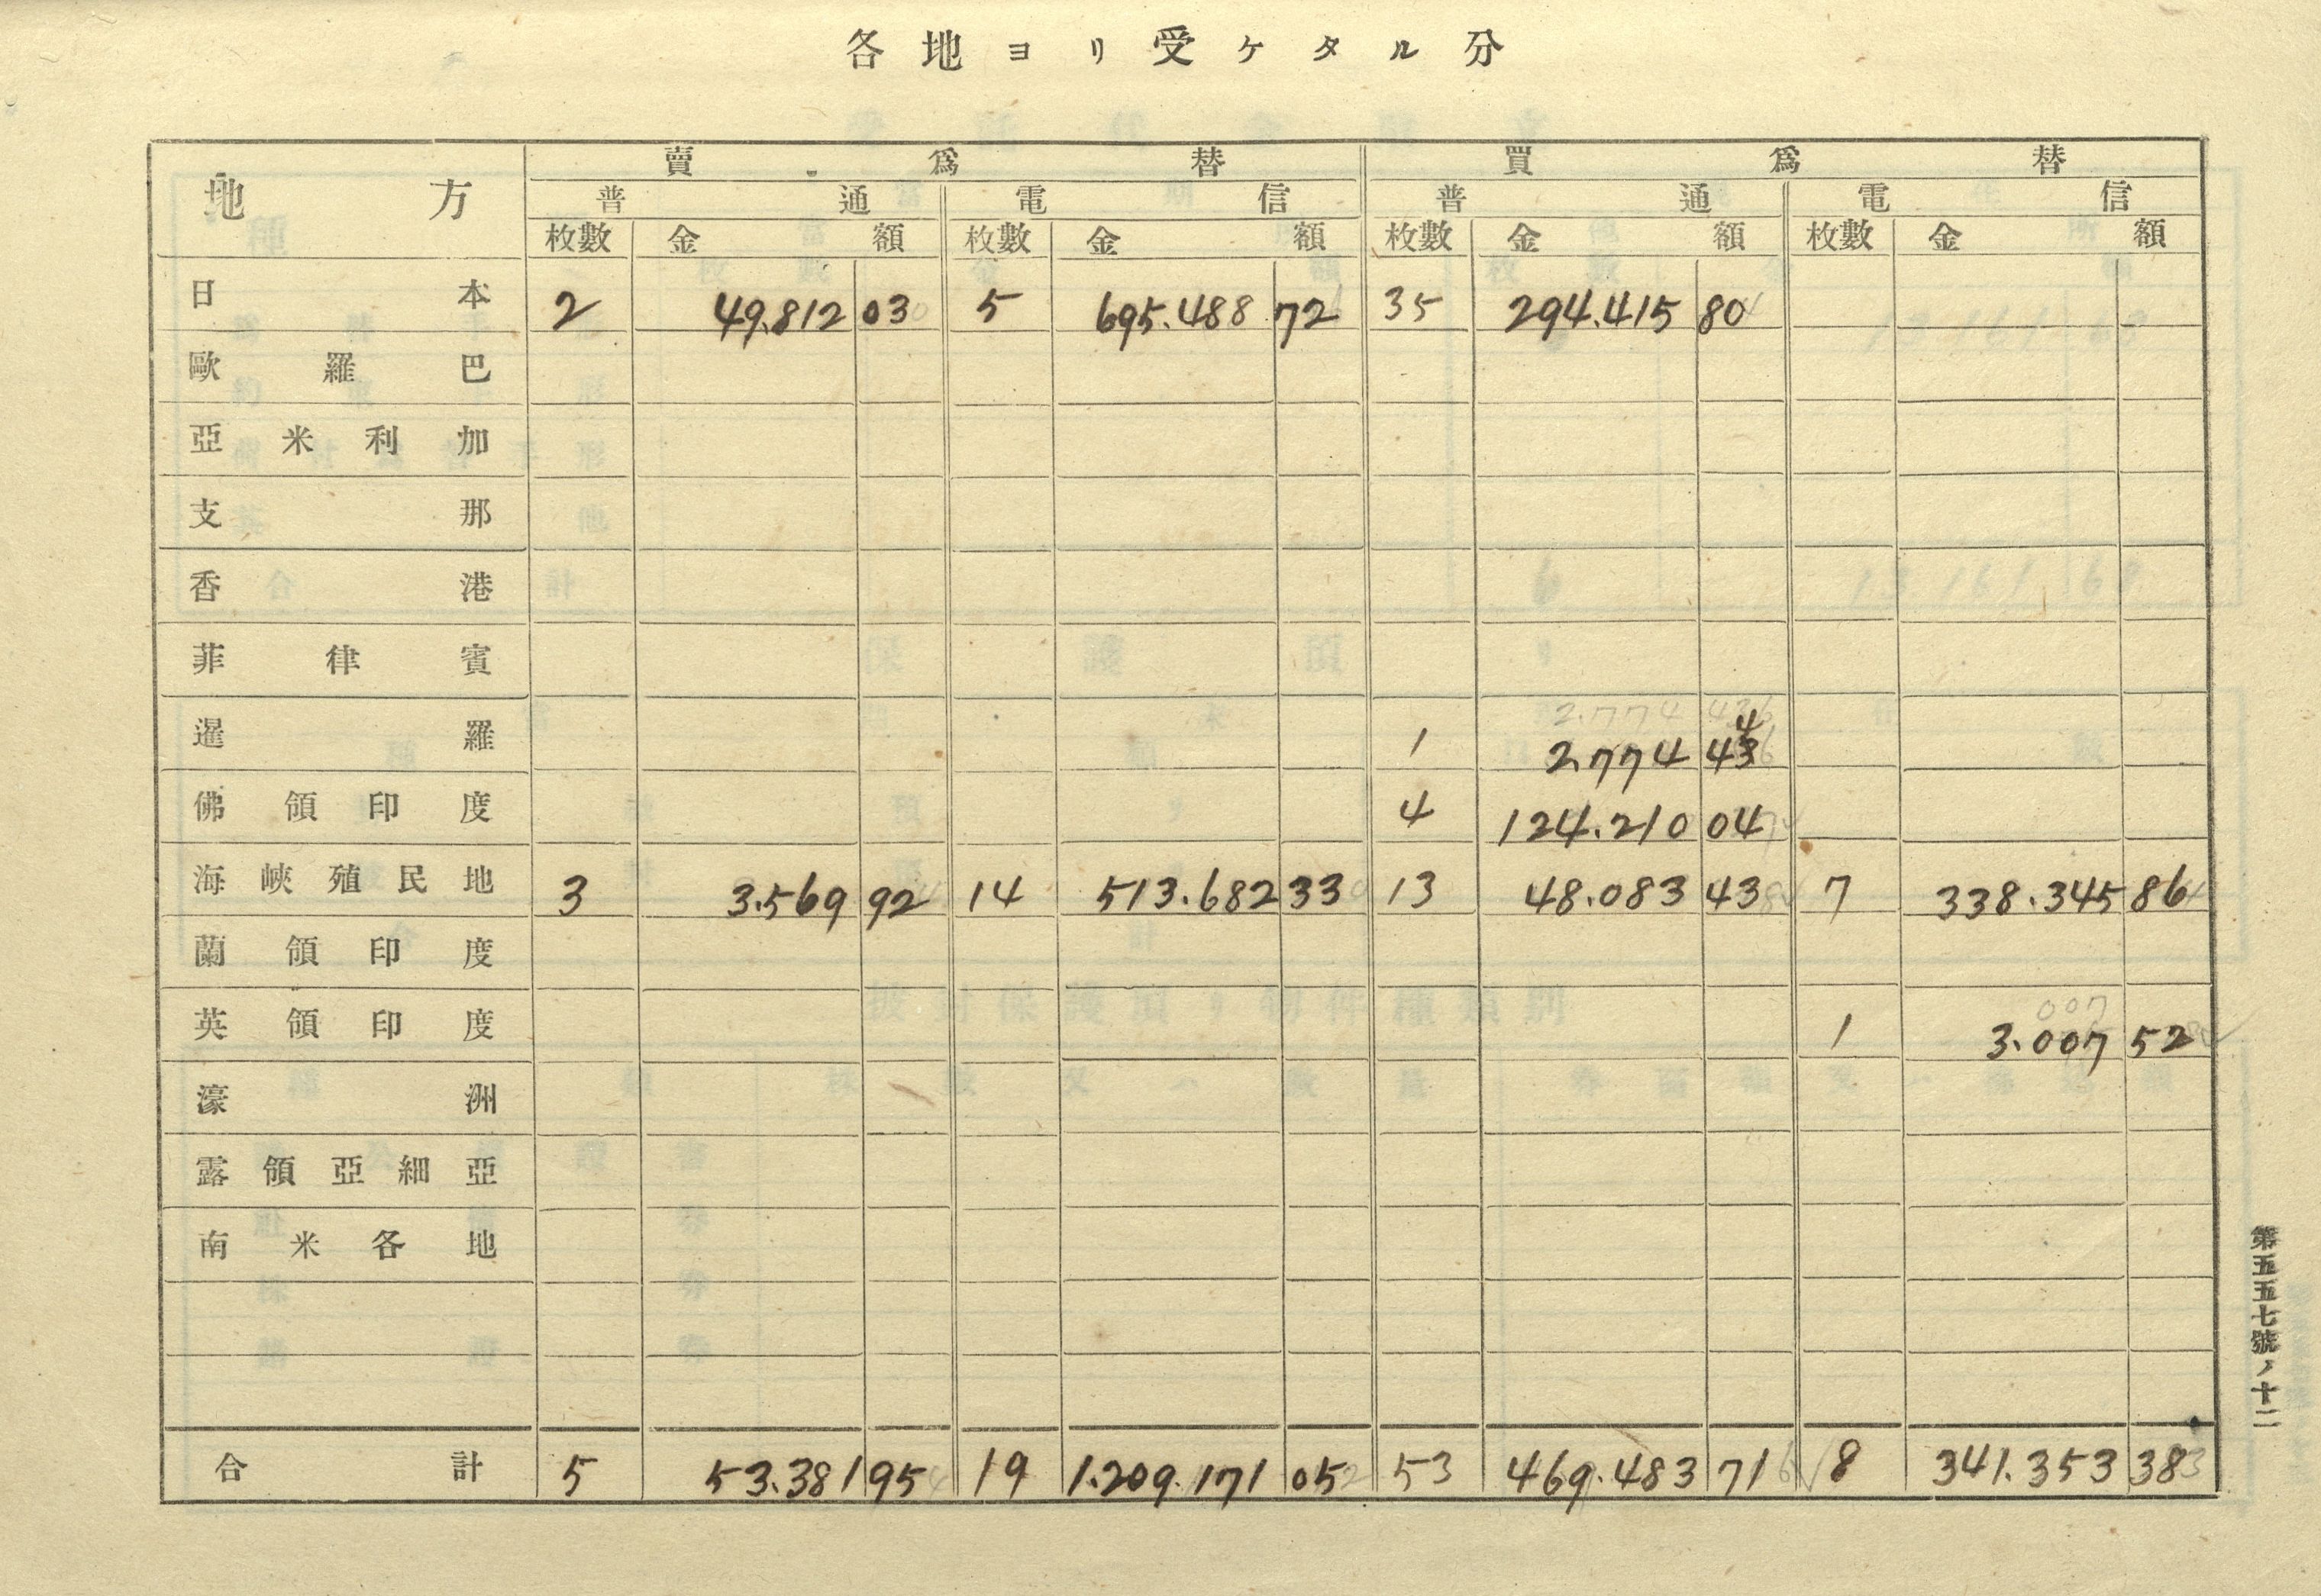 各地ヨリ受ケタル分
地方 賣爲替 買爲替
普通 電信 普通 電信
枚數 金額 枚數 金額 枚數 金額 枚數 金額
日本 2 49.812 03 5 695.488 72 35 294.415 80
歐羅巴
亞米利加
支那
香港
菲律賓
2.774 43
暹羅 1 2.774 43 4
佛領印度 4 124.210 04
海峽殖民地 3 3.569 92 14 513.682 33 13 48.083 43 7 338.345 86
蘭領印度
007
英領印度 1 3.007 52
濠洲
露領亞細亞
南米各地
合計 5 53.381 95 19 1.209.171 05 53 469.483 71 8 341.353 38
第五五七號ノ十二